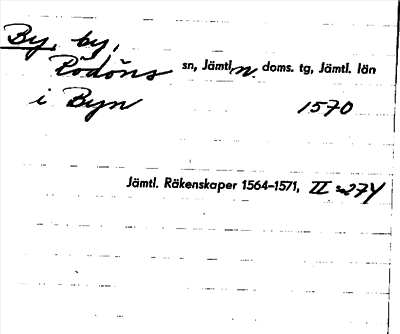 By, by,
Rödöns sn, Jämtl. n. doms. tg, Jämtl. län
i Byn 1570
Jämtl. Räkenskaper 1564–1571, II s. 274